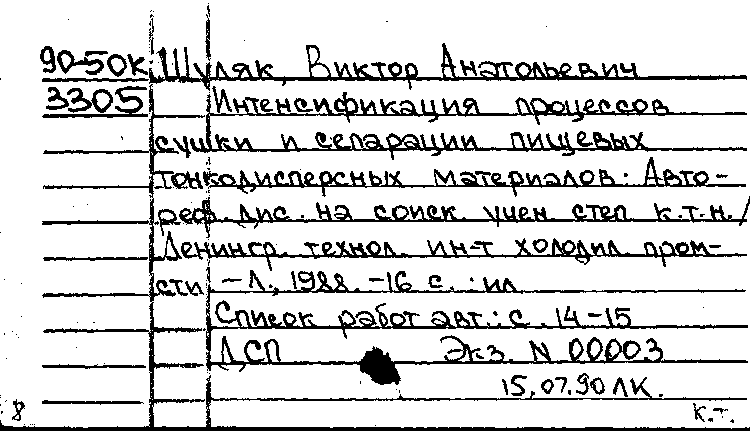 90-50к Шуляк, Виктор Анатольевич
3305 Интенсификация процессов
сушки и сепарации пищевых
тонкодисперсных материалов: Авто-
реф. дис. на соиск. учен. степ. к.т.н./
Ленингр. технол. ин-т холодил. пром-
сти. - Л., 1988. - 16 с. : ил
Список работ авт.: с. 14-15
ДСП Экз. N 00003
15.07.90 ЛК.
8 к.т.